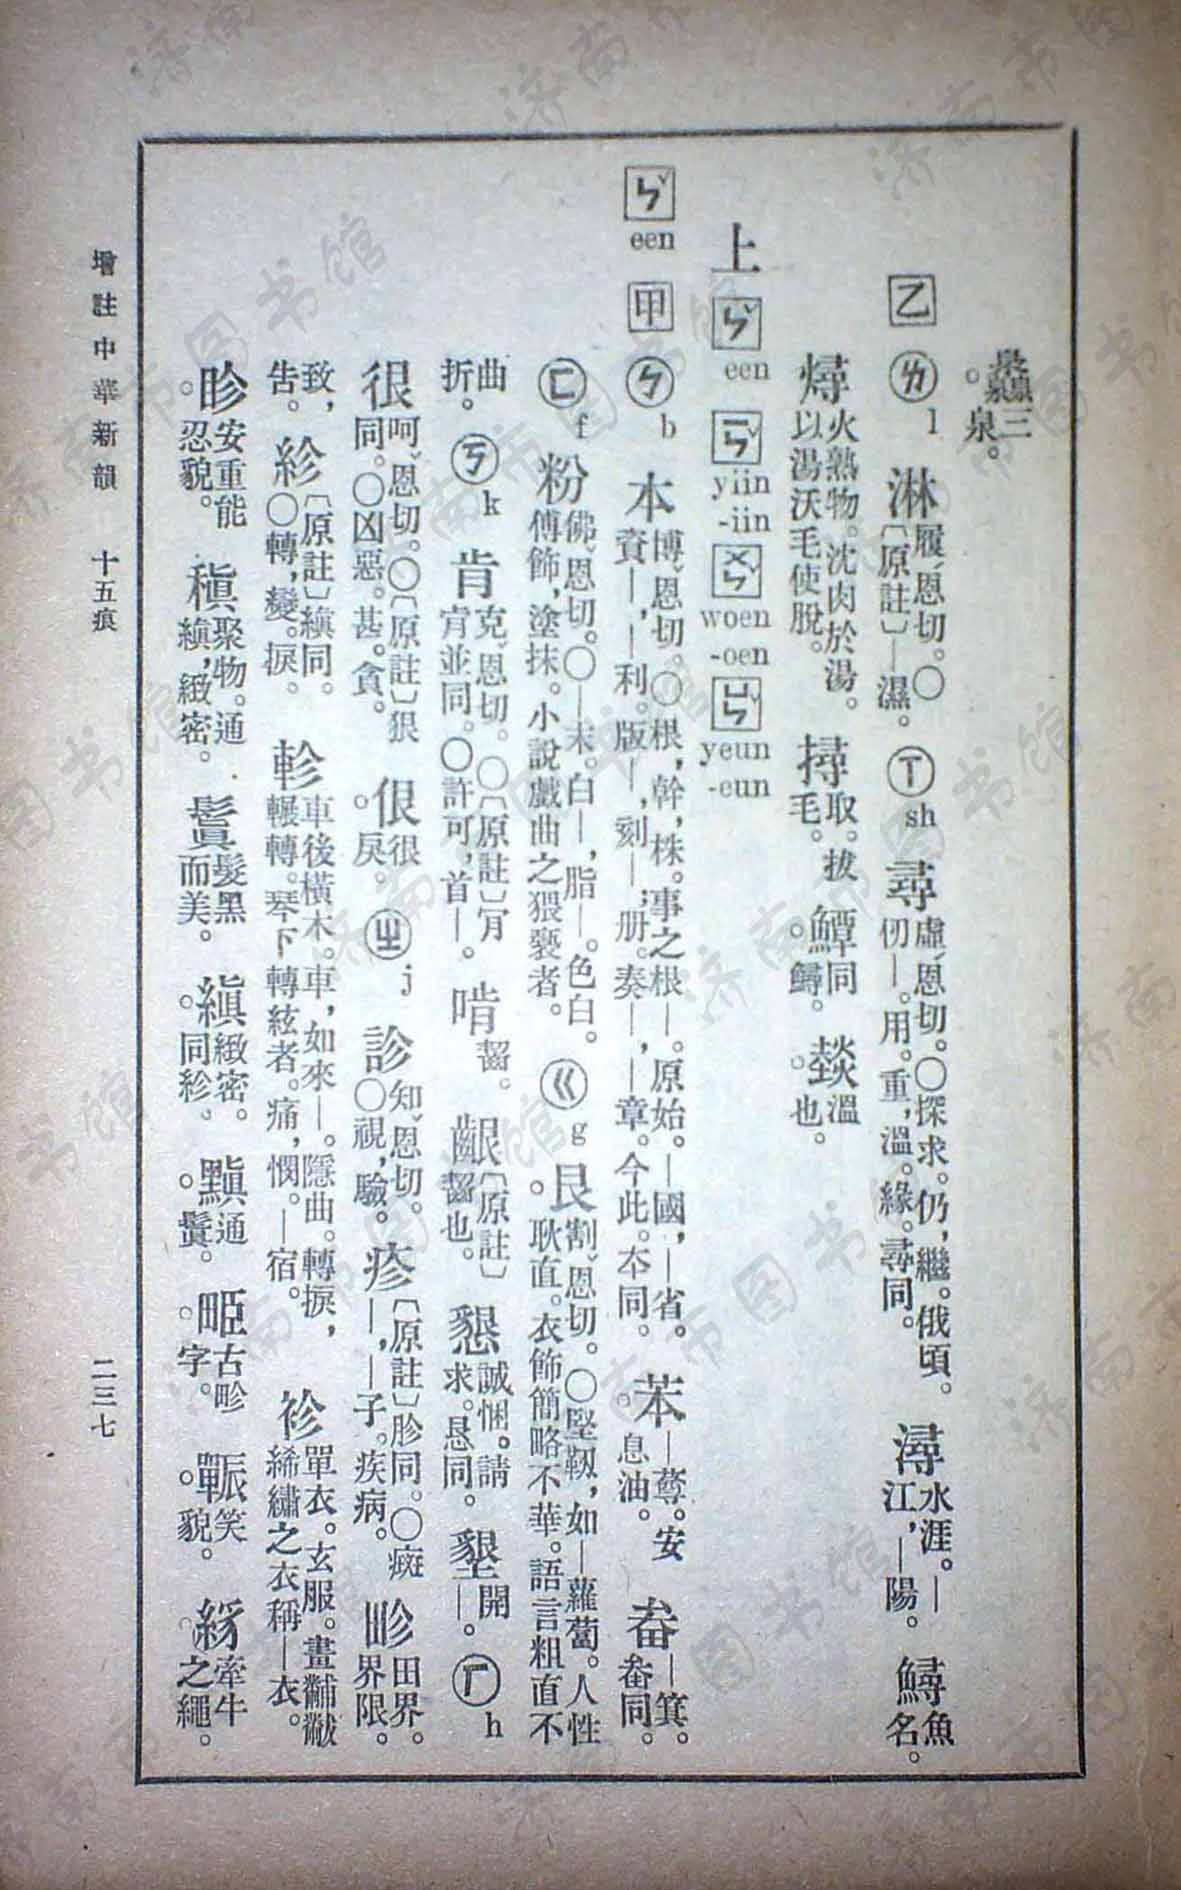 灥三泉。
乙 ㄌ l 淋履ˊ恩切。○〔原註〕—濕。 ㄒ sh 尋虛ˊ恩切。○探求。仍,繼。俄頃。仞—。用。重,溫。緣。尋同。 潯水涯。—江,—陽。 鱘魚名。
燖火熟物。沈肉於湯。以湯沃毛使脫。 撏取。拔毛。 鱏同鱘。 燅溫也。
上 ㄣˇ een ㄧㄣˇ yiin -iin ㄨㄣˇ woen -oen ㄩㄣˇ yeun -eun
ㄣˇ een 甲 ㄅ b 本博ˇ恩切。○根,幹,株。事之根—。原始。—國,—省。賚—,—利。版—,刻—;册。奏—,—章。今此。夲同。 苯—䔿。安息油。 畚—箕。畚同。
ㄈ f 粉佛ˇ恩切。○—末。白—,脂—。色白。傅飾,塗抹。小說戲曲之猥褻者。 ㄍ g 艮割ˇ恩切。○堅靱,如—蘿蔔。人性耿直。衣飾簡略不華。語言粗直不
曲折。 ㄎ k 肯克ˇ恩切。○〔原註〕肎肯並同。○許可,首—。 啃齧。 齦〔原註〕齧也。 懇誠悃。請求。恳同。 墾開—。 ㄏ h
很呵ˇ恩切。○〔原註〕狠同。○凶惡。甚。貪。 佷很。戾。 ㄓ j 診知ˇ恩切。○視,驗。 疹〔原註〕胗同。○癍—,—子。疾病。 畛田界。界限。
致,告。 紾〔原註〕縝同。○轉,變。捩。 軫車後橫木。車,如來—。隱曲。轉捩,輾轉。琴下轉絃者。痛,憫。—宿。 袗單衣。玄服。畫黼黻絺繡之衣稱—衣。
眕安重能忍貌。 稹聚物。通縝,緻密。 鬒髮黑而美。 縝緻密。同紾。 黰通鬒。 畛古畛字。 囅笑貌。 紖牽牛之繩。
增註中華新韻 十五痕 二三七